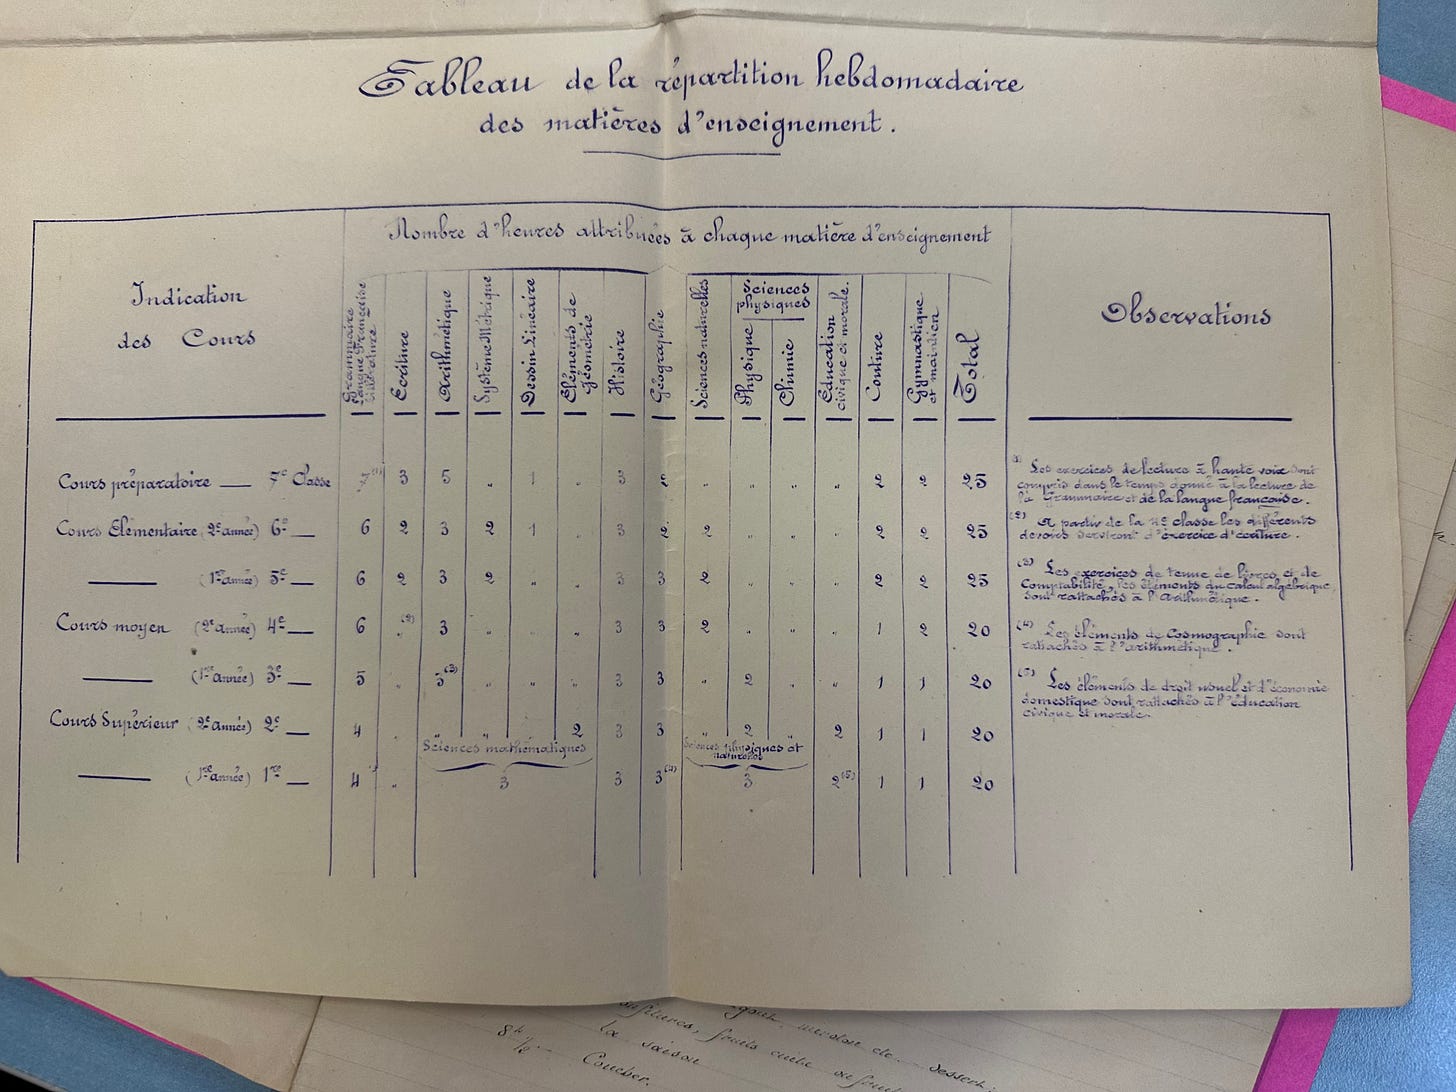 Tableau de la répartition hebdomadaire
des matières d'enseignement.
Nombre d'heures attribuées à chaque matière d'enseignement
Indication
des Cours
Grammaire
Langue Française
Littérature
Ecriture
Arithmétique
Système Métrique
Dessin Linéaire
Eléments de
Géométrie
Histoire
Géographie
Sciences naturelles
Sciences
physiques
Physique
Chimie
Education
civique et morale.
Couture
Gymnastique
et maintien
Total
Observations
Cours préparatoire — 7e Classe 7(1) 3 5 " 1 " 3 2 " " " " 2 2 25
Cours Elémentaire (2e année) 6e — 6 2 3 2 1 " 3 2 2 " " " 2 2 25
— (1re année) 5e — 6 2 3 2 " " 3 3 2 " " " 2 2 25
Cours moyen (2e année) 4e — 6 "(2) 3 " " " 3 3 2 " " " 1 2 20
— (1re année) 3e — 5 " 3(3) " " " 3 3 " 2 " " 1 1 20
Cours Supérieur (2e année) 2e — 4 " " " " 2 3 3 " 2 " 2 1 1 20
Sciences mathématiques
Sciences physiques et
naturelles
— (1re année) 1re — 4 " 3 3 3(4) 3 2(5) 1 1 20
(1) Les exercices de lecture à haute voix sont
compris dans le temps donné à la lecture de
la Grammaire et de la langue française.
(2) A partir de la 4e classe les différents
devoirs serviront d'exercice d'écriture.
(3) Les exercices de tenue de livres et de
Comptabilité, les éléments du calcul algébrique,
sont rattachés à l'Arithmétique.
(4) Les éléments de Cosmographie sont
rattachés à l'arithmétique.
(5) Les éléments de droit usuel et d'économie
domestique sont rattachés à l'éducation
civique et morale.
dessert;
fruits cuits ou
la saison
8h ½ — Coucher.